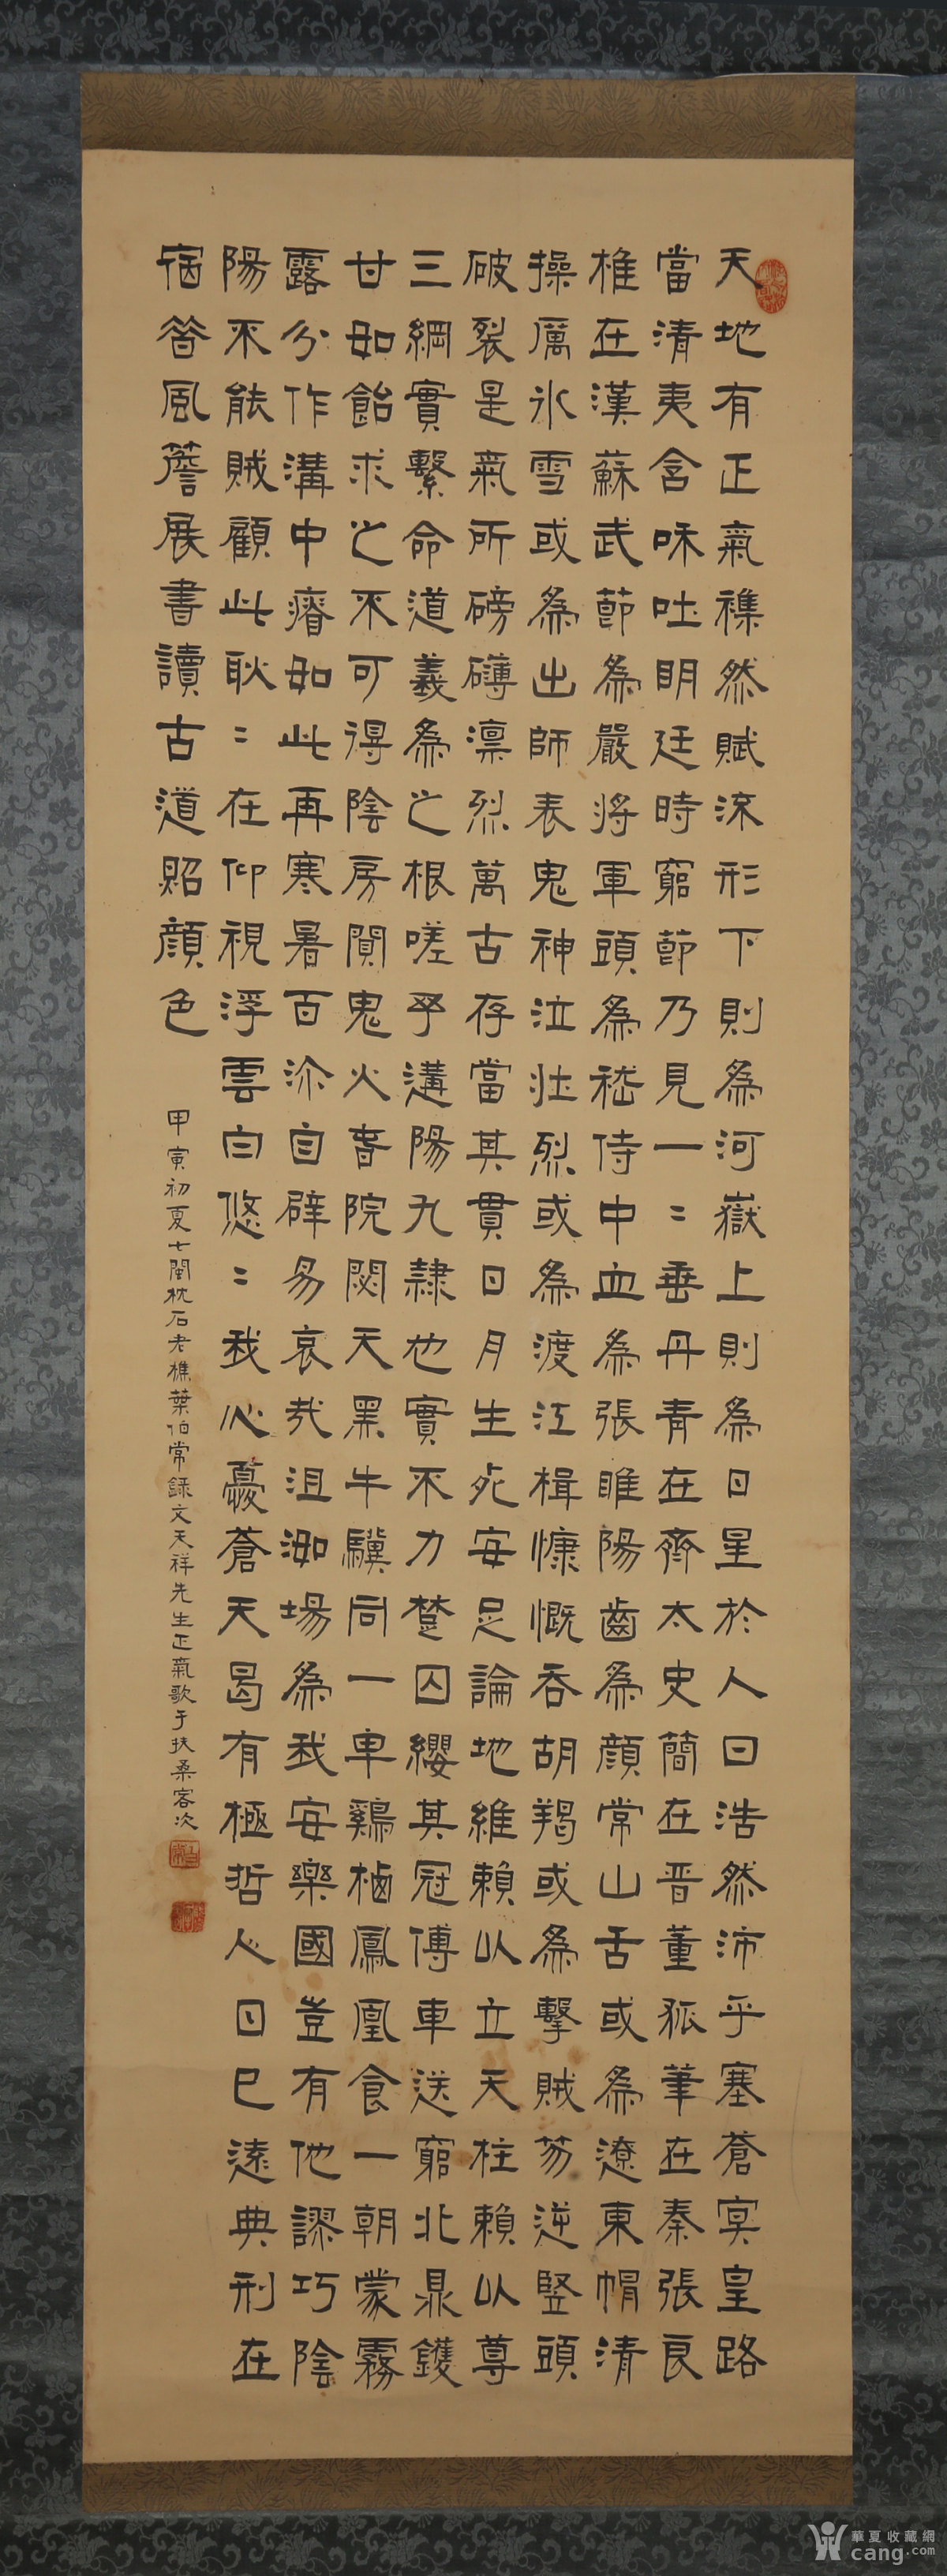 天地有正氣襍然賦流形下則為河嶽上則為日星於人曰浩然沛乎塞蒼冥皇路
當清夷含和吐明廷時窮節乃見一〻垂丹青在齊太史簡在晋董狐筆在秦張良
椎在漢蘇武節為嚴將軍頭為嵇侍中血為張睢陽齒為顔常山舌或為遼東帽清
操厲氷雪或為出師表鬼神泣壮烈或為渡江楫慷慨吞胡羯或為擊賊笏逆豎頭
破裂是氣所磅礴凛烈萬古存當其貫日月生死安足論地維賴以立天柱賴以尊
三綱實繫命道義為之根嗟乎遘陽九隷也實不力楚囚纓其冠傳車送窮北鼎鑊
甘如飴求之不可得陰房闃鬼火春院閟天黑牛驥同一皁鷄栖鳳凰食一朝蒙霧
露分作溝中瘠如此再寒暑百沴自辟易哀哉沮洳場為我安樂國豈有他謬巧陰
陽不能賊顧此耿〻在仰視浮雲白悠〻我心憂蒼天曷有極哲人日已遠典刑在
宿昔風簷展書讀古道照顔色
甲寅初夏七閩枕石老樵葉伯常録文天祥先生正氣歌于扶桑客次
華夏收藏網
cang.com